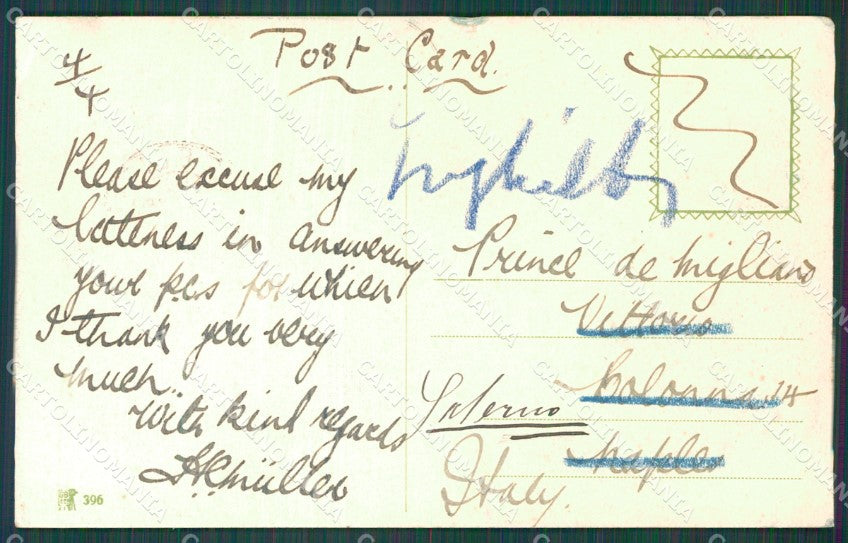 Post Card.
4/4
Please excuse my
lateness in answering
your pcs for which
I thank you very
much.
With kind regards
Müller
Prince de Migliano
Vittorio
Colonna 14
Naples
Salerno
Italy.
396
CARTOLINOMANIA